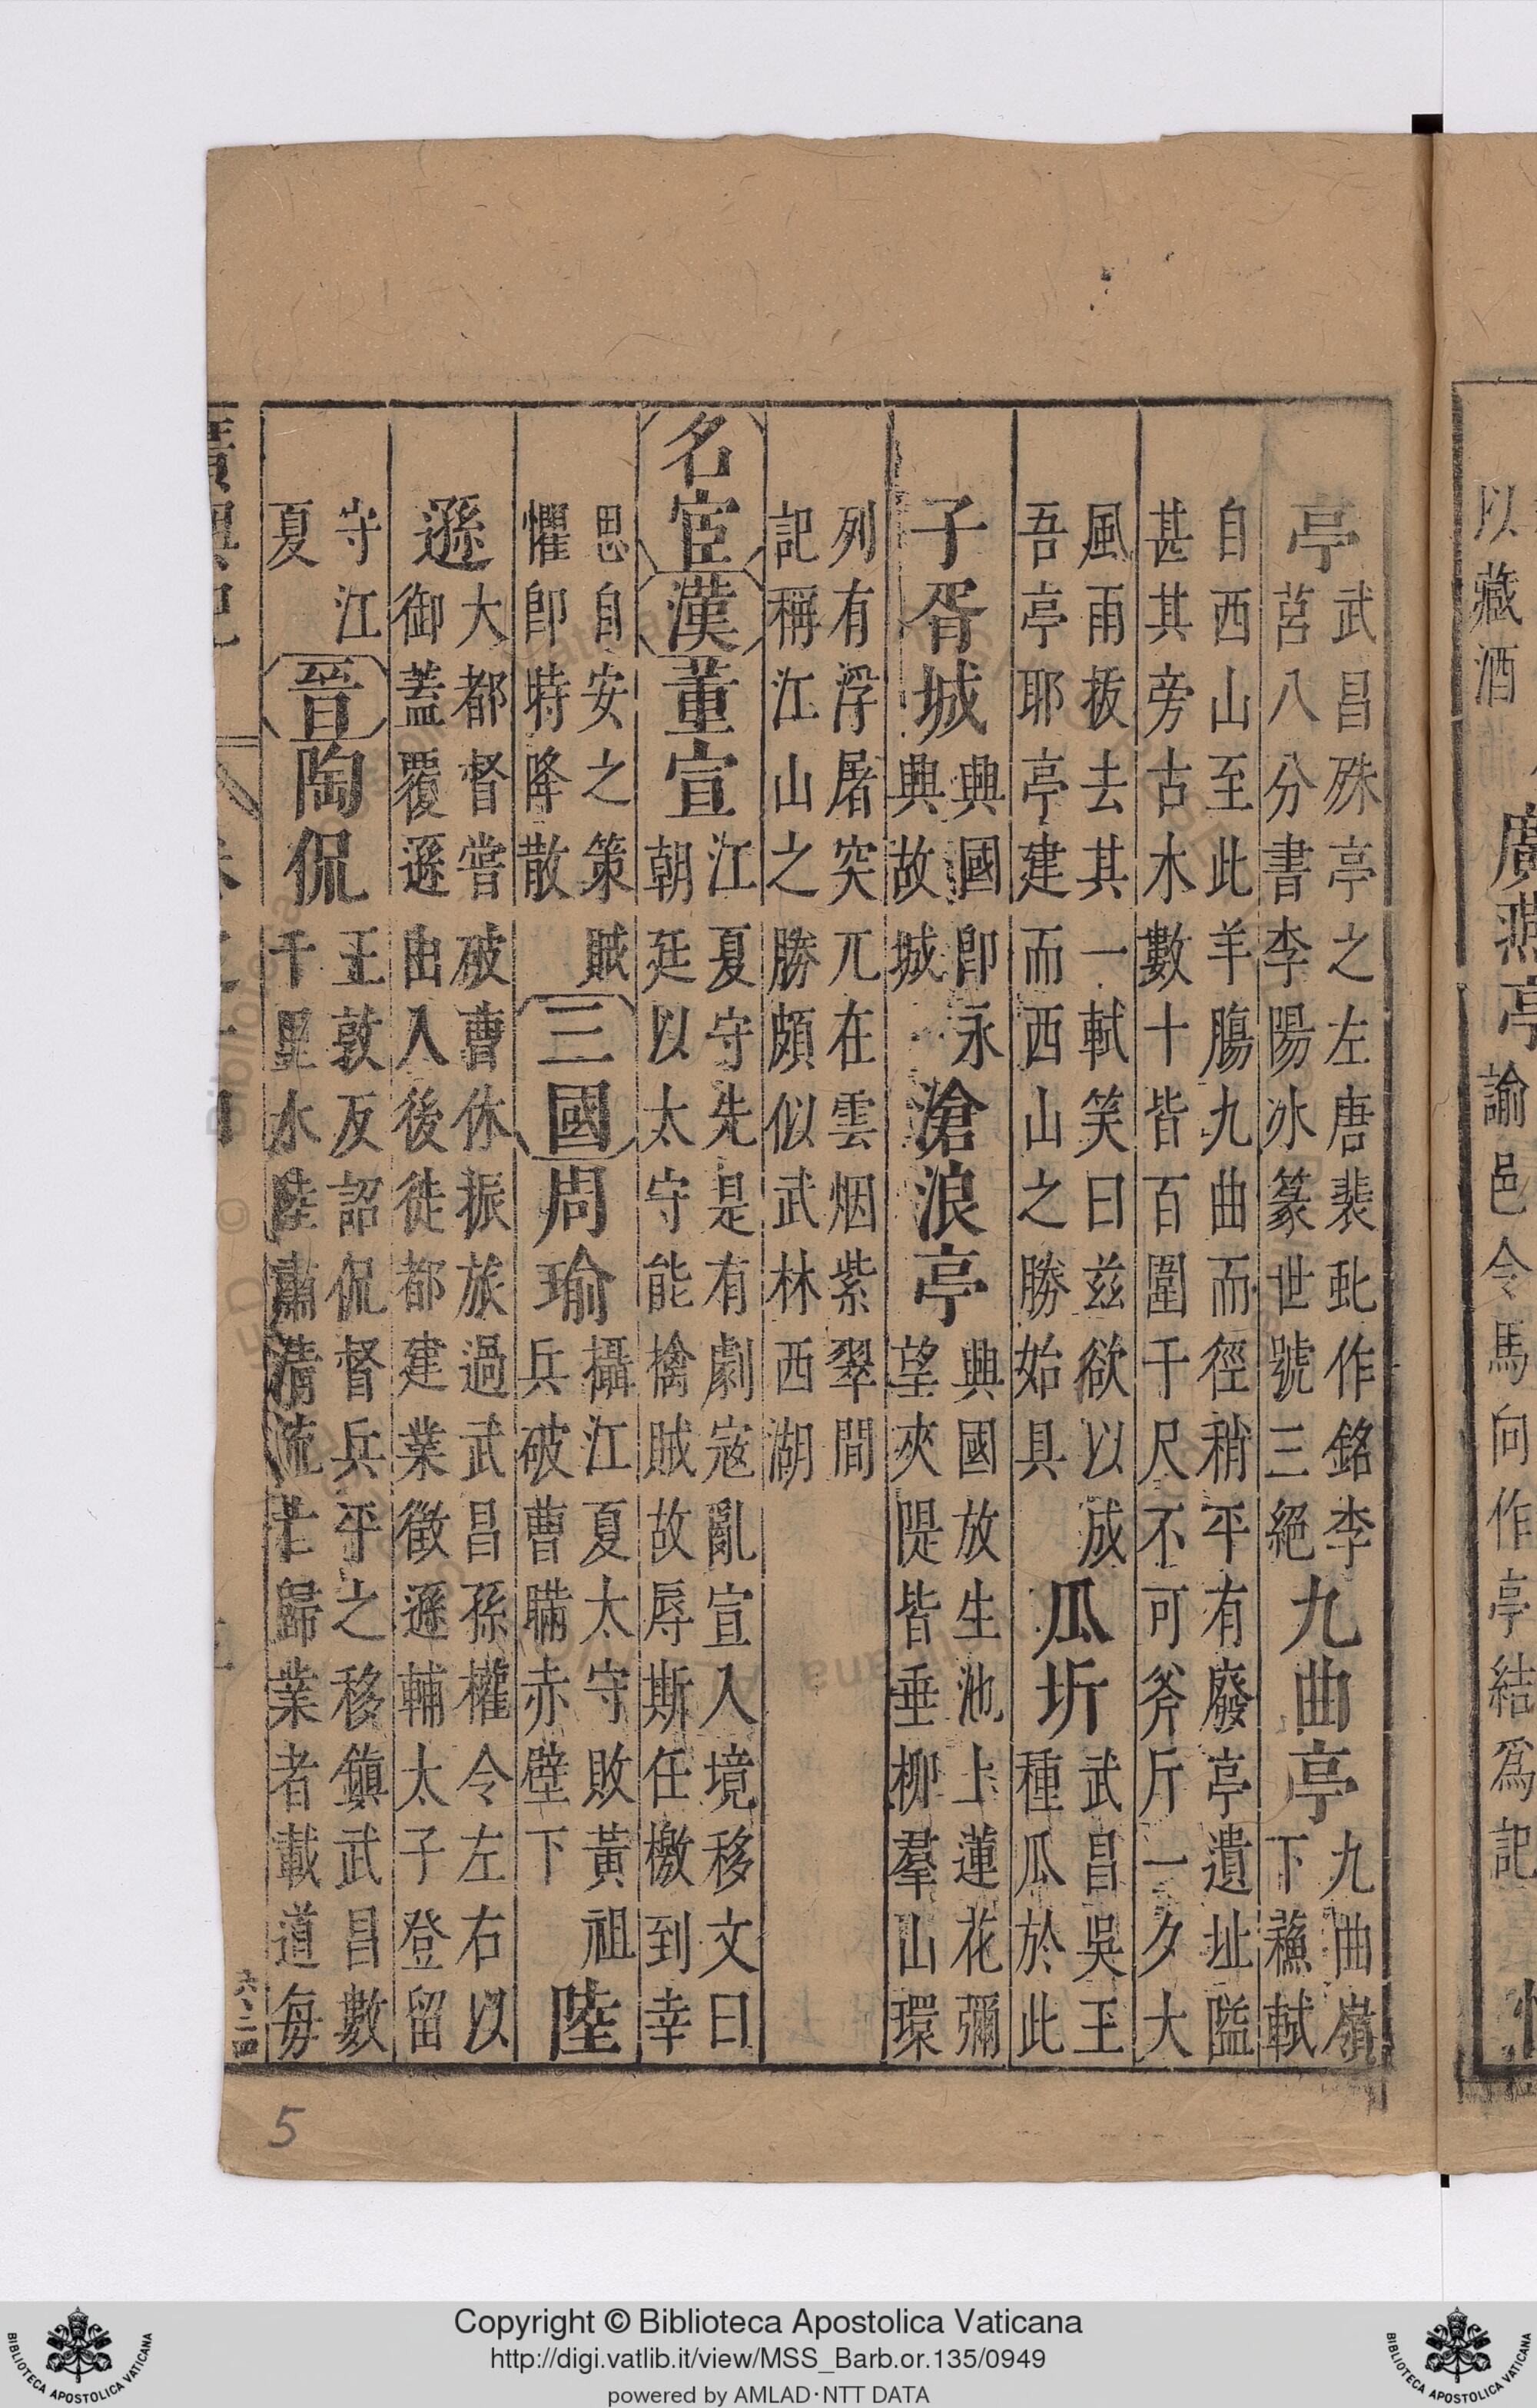 以藏酒
廣燕亭
諭邑令馬向作亭結爲記
亭武昌殊亭之左唐裴虬作銘李
莒八分書李陽冰篆世號三絕九曲亭九曲嶺
下蘇軾
自西山至此羊腸九曲而徑稍平有廢亭遺址隘
甚其旁古木數十皆百圍千尺不可斧斤一夕大
風雨拔去其一軾笑曰兹欲以成
吾亭耶亭建而西山之勝始具瓜圻武昌吳王
種瓜於此
子胥城興國卽永
興故城滄浪亭興國放生池上蓮花彌
望夾隄皆垂柳羣山環
列有浮屠突兀在雲烟紫翠間
記稱江山之勝頗似武林西湖
名宦漢董宣江夏守先是有劇寇亂宣入境移文曰
朝廷以太守能擒賊故辱斯任檄到幸
思自安之策賊
懼卽時降散三國周瑜攝江夏太守敗黃祖
兵破曹瞞赤壁下陸
遜大都督嘗破曹休振旅過武昌孫權令左右以
御蓋覆遜出入後徙都建業徵遜輔太子登留
守江
夏晉陶侃王敦反詔侃督兵平之移鎮武昌數
千里水陸肅清流亡歸業者載道每
5
Copyright © Biblioteca Apostolica Vaticana
http://digi.vatlib.it/view/MSS_Barb.or.135/0949
powered by AMLAD·NTT DATA
BIBLIOTECA APOSTOLICA VATICANA
BIBLIOTECA APOSTOLICA VATICANA